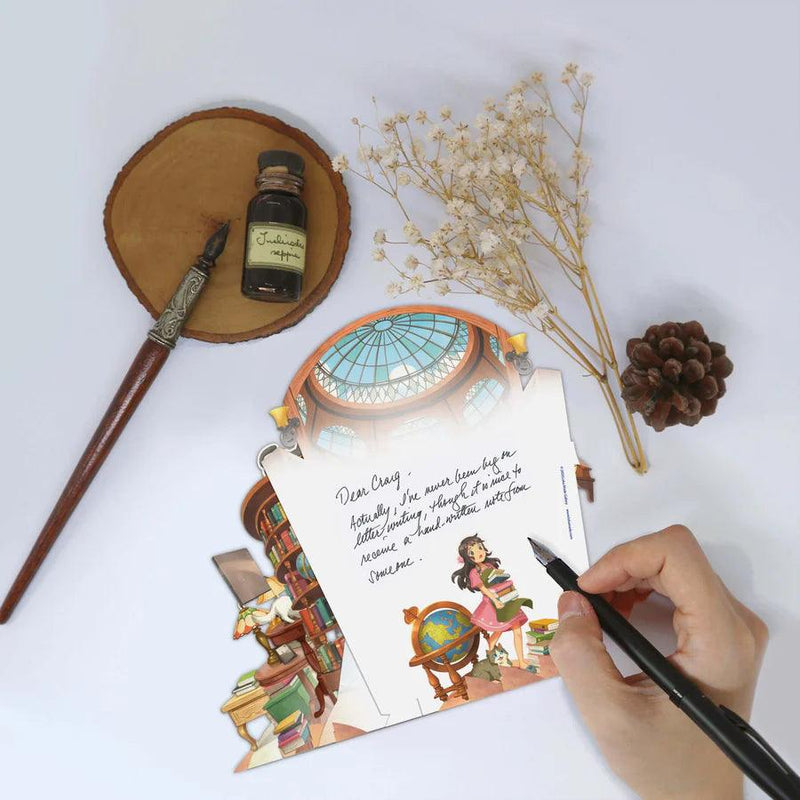 Dear Craig,
Actually, I've never been big on
letter writing, though it is nice to
receive a hand-written note from
someone.